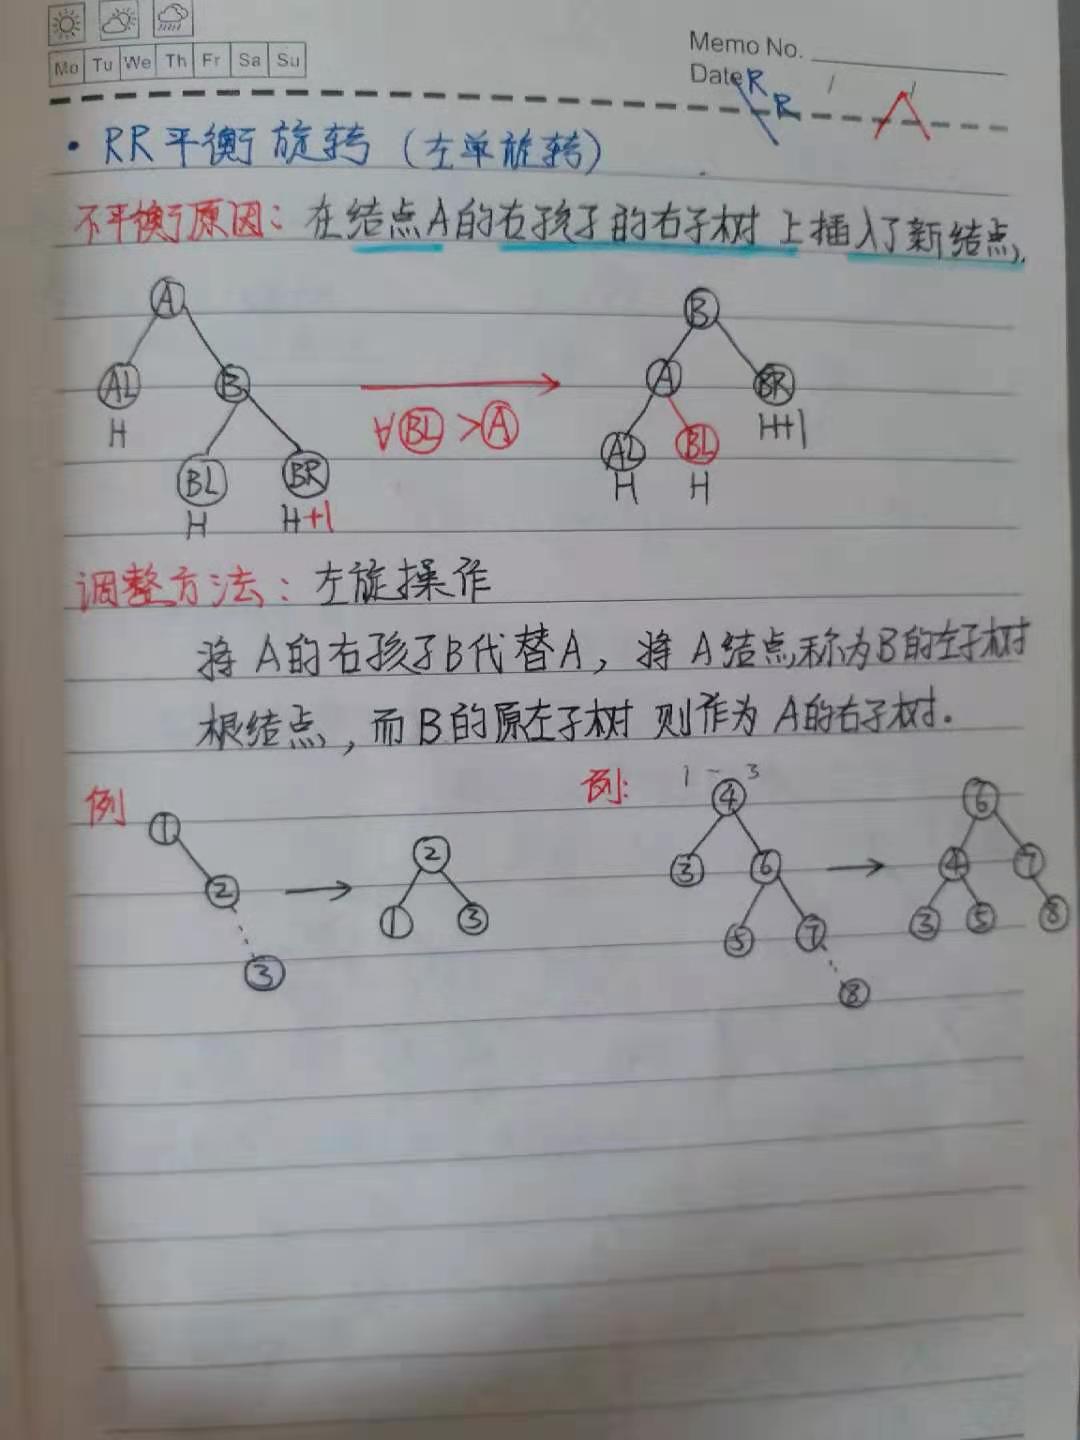 Mo Tu We Th Fr Sa Su
Memo No.
Date / /
R
R
• RR平衡旋转（左单旋转）
不平衡原因：在结点A的右孩子的右子树上插入了新结点.
A
B
AL B
A BR
H
∀BL>A
H+1
BL BR
AL BL
H H+1
H H
调整方法：左旋操作
将A的右孩子B代替A，将A结点称为B的左子树
根结点，而B的原左子树则作为A的右子树.
例
1
2
3
2
1 3
例:
1 - 3
4
3 6
5 7
8
6
4 7
3 5 8